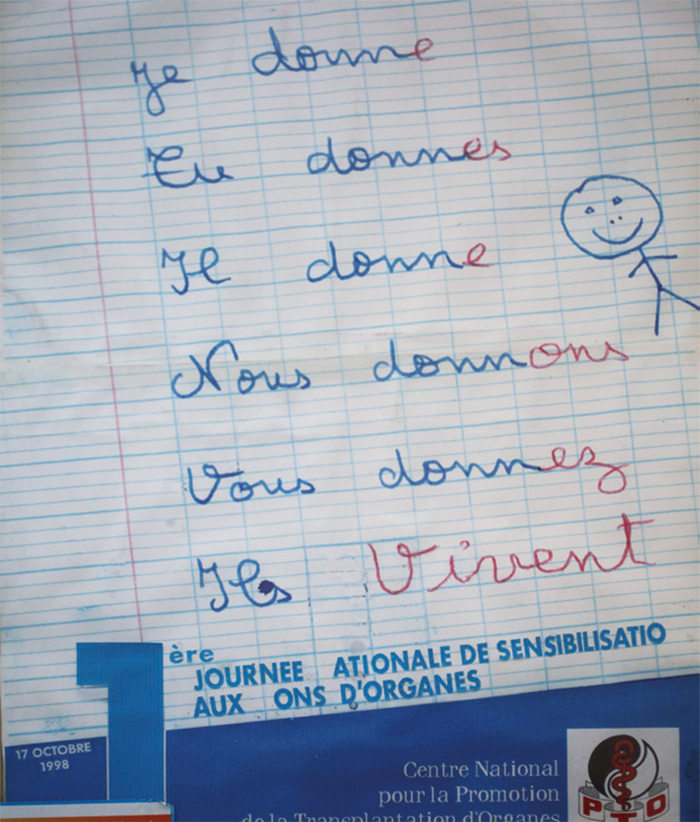 Je donne
Tu donnes
Il donne
Nous donnons
Vous donnez
Ils Vivent
1ère
JOURNEE ATIONALE DE SENSIBILISATIO
AUX ONS D'ORGANES
17 OCTOBRE
1998
Centre National
pour la Promotion
de la Transplantation d'Organes
PTO